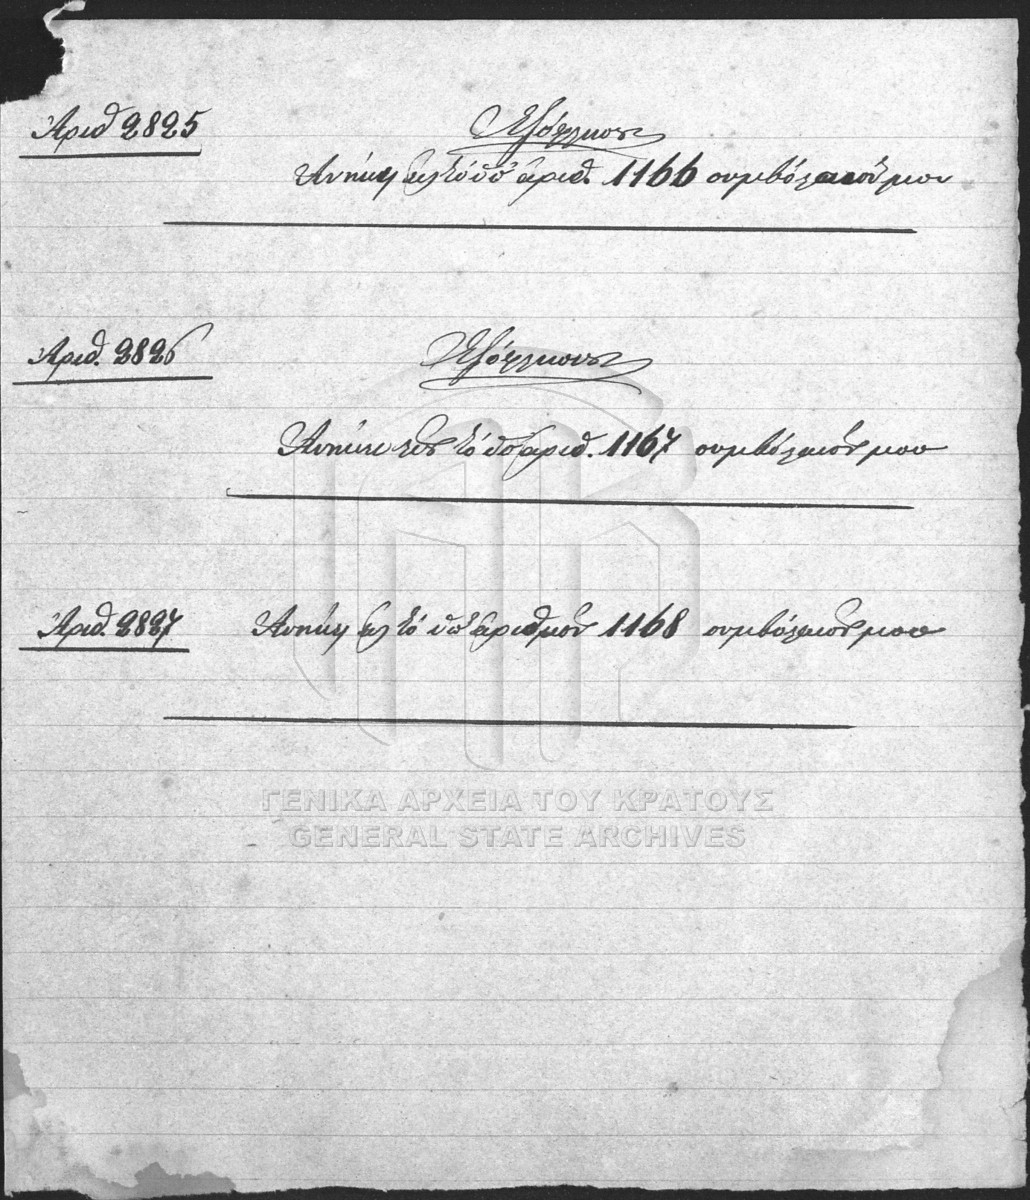 Ἀριθ 2825
Ἐξόφλησις
Ἀνήκει εἰς τὸ ὑπ' ἀριθ. 1166 συμβόλαιόν μου
Ἀριθ. 2826
Ἐξόφλησις
Ἀνήκει εἰς τὸ ὑπ' ἀριθ. 1167 συμβόλαιόν μου
Ἀριθ. 2827 Ἀνήκει εἰς τὸ ὑπ' ἀριθμὸν 1168 συμβόλαιόν μου
ΓΕΝΙΚΑ ΑΡΧΕΙΑ ΤΟΥ ΚΡΑΤΟΥΣ
GENERAL STATE ARCHIVES